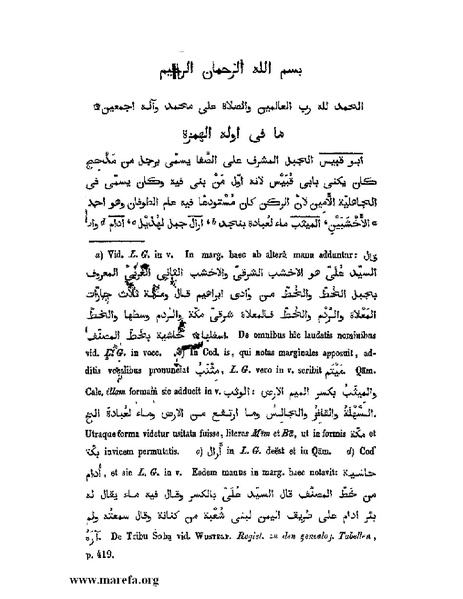 بسم الله الرحمان الرحيم
الحمد لله رب العالمين والصلاة على محمد وآله اجمعين
ما فى اوله الهمزة
ابو قبيس الجبل المشرف على الصفا يسمّى برجل من مذحج
كان يكنى بابى قُبَيْس لانه اوّل مَنْ بنى فيه وكان يسمى فى
الجاهلية الأَمين لانّ الركن كان مُسْتودعًا فيه عام الطوفان وهو احد
الأَخْشَبَيْنِ، الميثب ماء لعُبادة بنجد b، أُرال جبل لهُذَيْل c، أُدَام d واد
a) Vid. L. G. in v. In marg. haec ab alterâ manu adduntur: قال
السيّد عُلَىّ هو الاخشب الشرقىّ والاخشب الثانى الغربىّ المعروف
بجبل الخُطّ والخُطّ من وادى ابراهيم قال ومكّة ثلاث
المَعْلاة والرَّدْم والخُطّ فالمعلاة شرقىّ مكّة والردم وسطها والخُطّ
اسفلها حاشية بخطّ المصنّف. De omnibus hîc laudatis nominibus
vid. L. G. in voce. b) In Cod. is, qui notas marginales apposuit, ad-
ditis vocalibus pronunciat مِثْنَب, L. G. vero in v. scribit مِيْثَب. Qâm.
Calc. illam formam sic adducit in v. الوثب: والميثَب بكسر الميم الارض
السَّهْلة والقافز والجالس وما ارتفع من الارض وماء لعُبادة الخ.
Utraque forma videtur usitata fuisse, literae Mîm et Bâ, ut in formis مكة et
بكة invicem permutatis. c) أُرال in L. G. deëst et in Qâm. d) Cod
أُدام, et sic L. G. in v. Eadem manus in marg. haec notavit: حاشية
من خطّ المصنّف قال السيّد عُلَىّ بالكسر وقال فيه ماء يقال له
بئر ادام على طريق اليمن لبنى شُعْبة من كنانة وقال سمعتُه ولم
أره. De Tribu Soba vid. Wüstenf. Regist. zu den genealog. Tabellen,
p. 419.
www.marefa.org